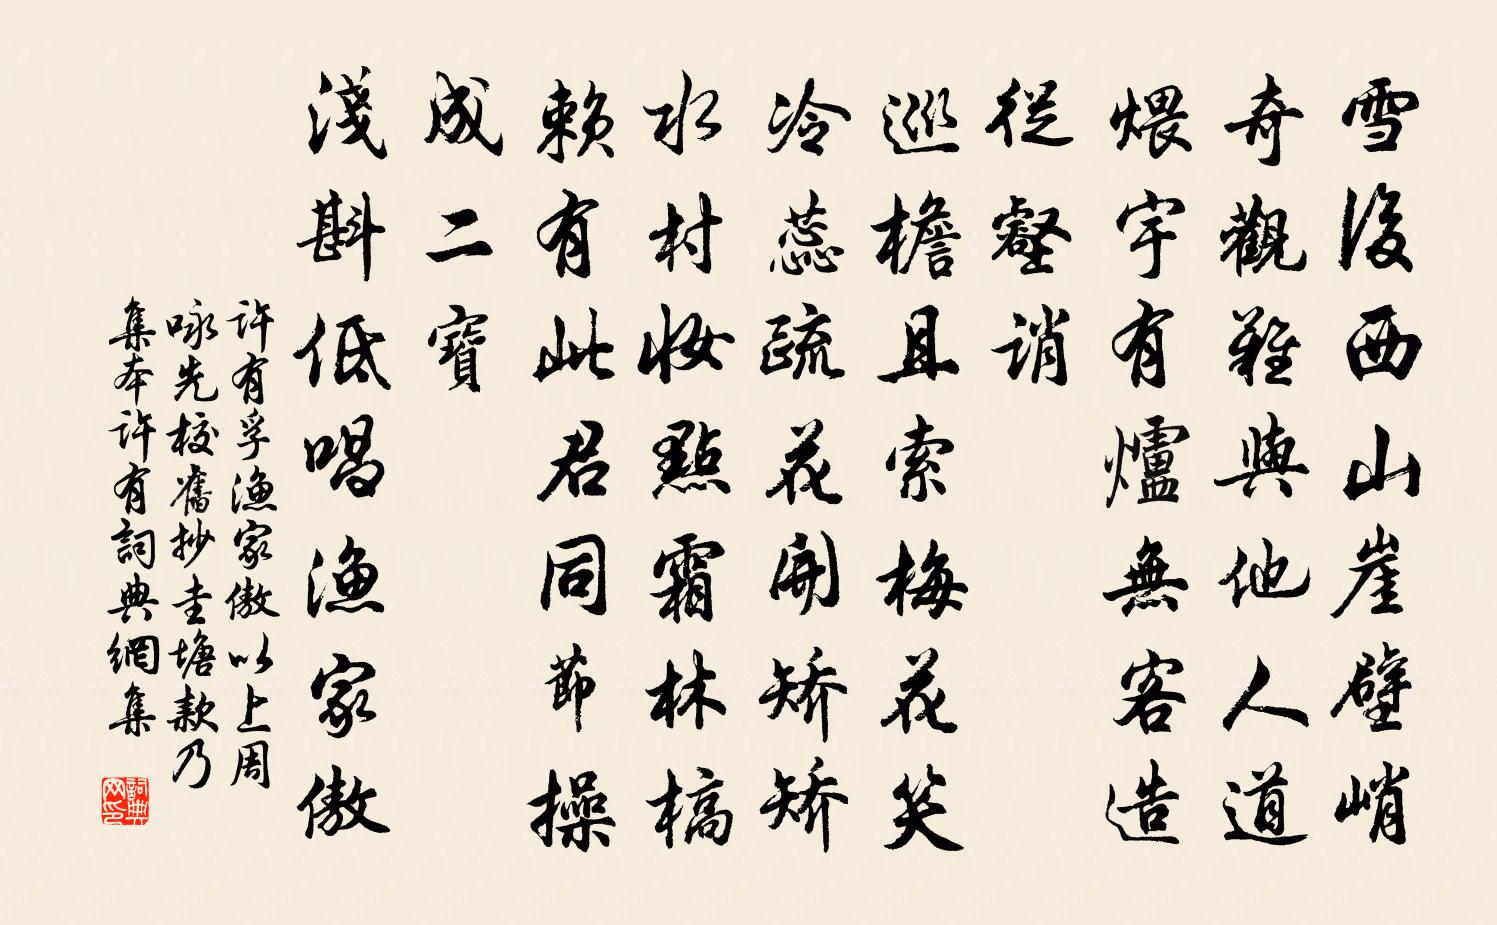 雪後西山崖壁峭
奇觀難與他人道
煨宇有爐無客造
從壑誚
巡檐且索梅花笑
冷蕊疏花開矯矯
水村妝點霜林槁
賴有此君同節操
成二寶
淺斟低唱漁家傲
許有孚漁家傲以上周
咏先校舊抄圭塘款乃
集本許有詞典網集
詞典網印